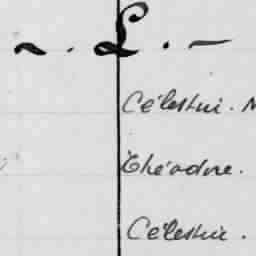 ~ . L . -
Célestin. M
Théodore.
Célestin.